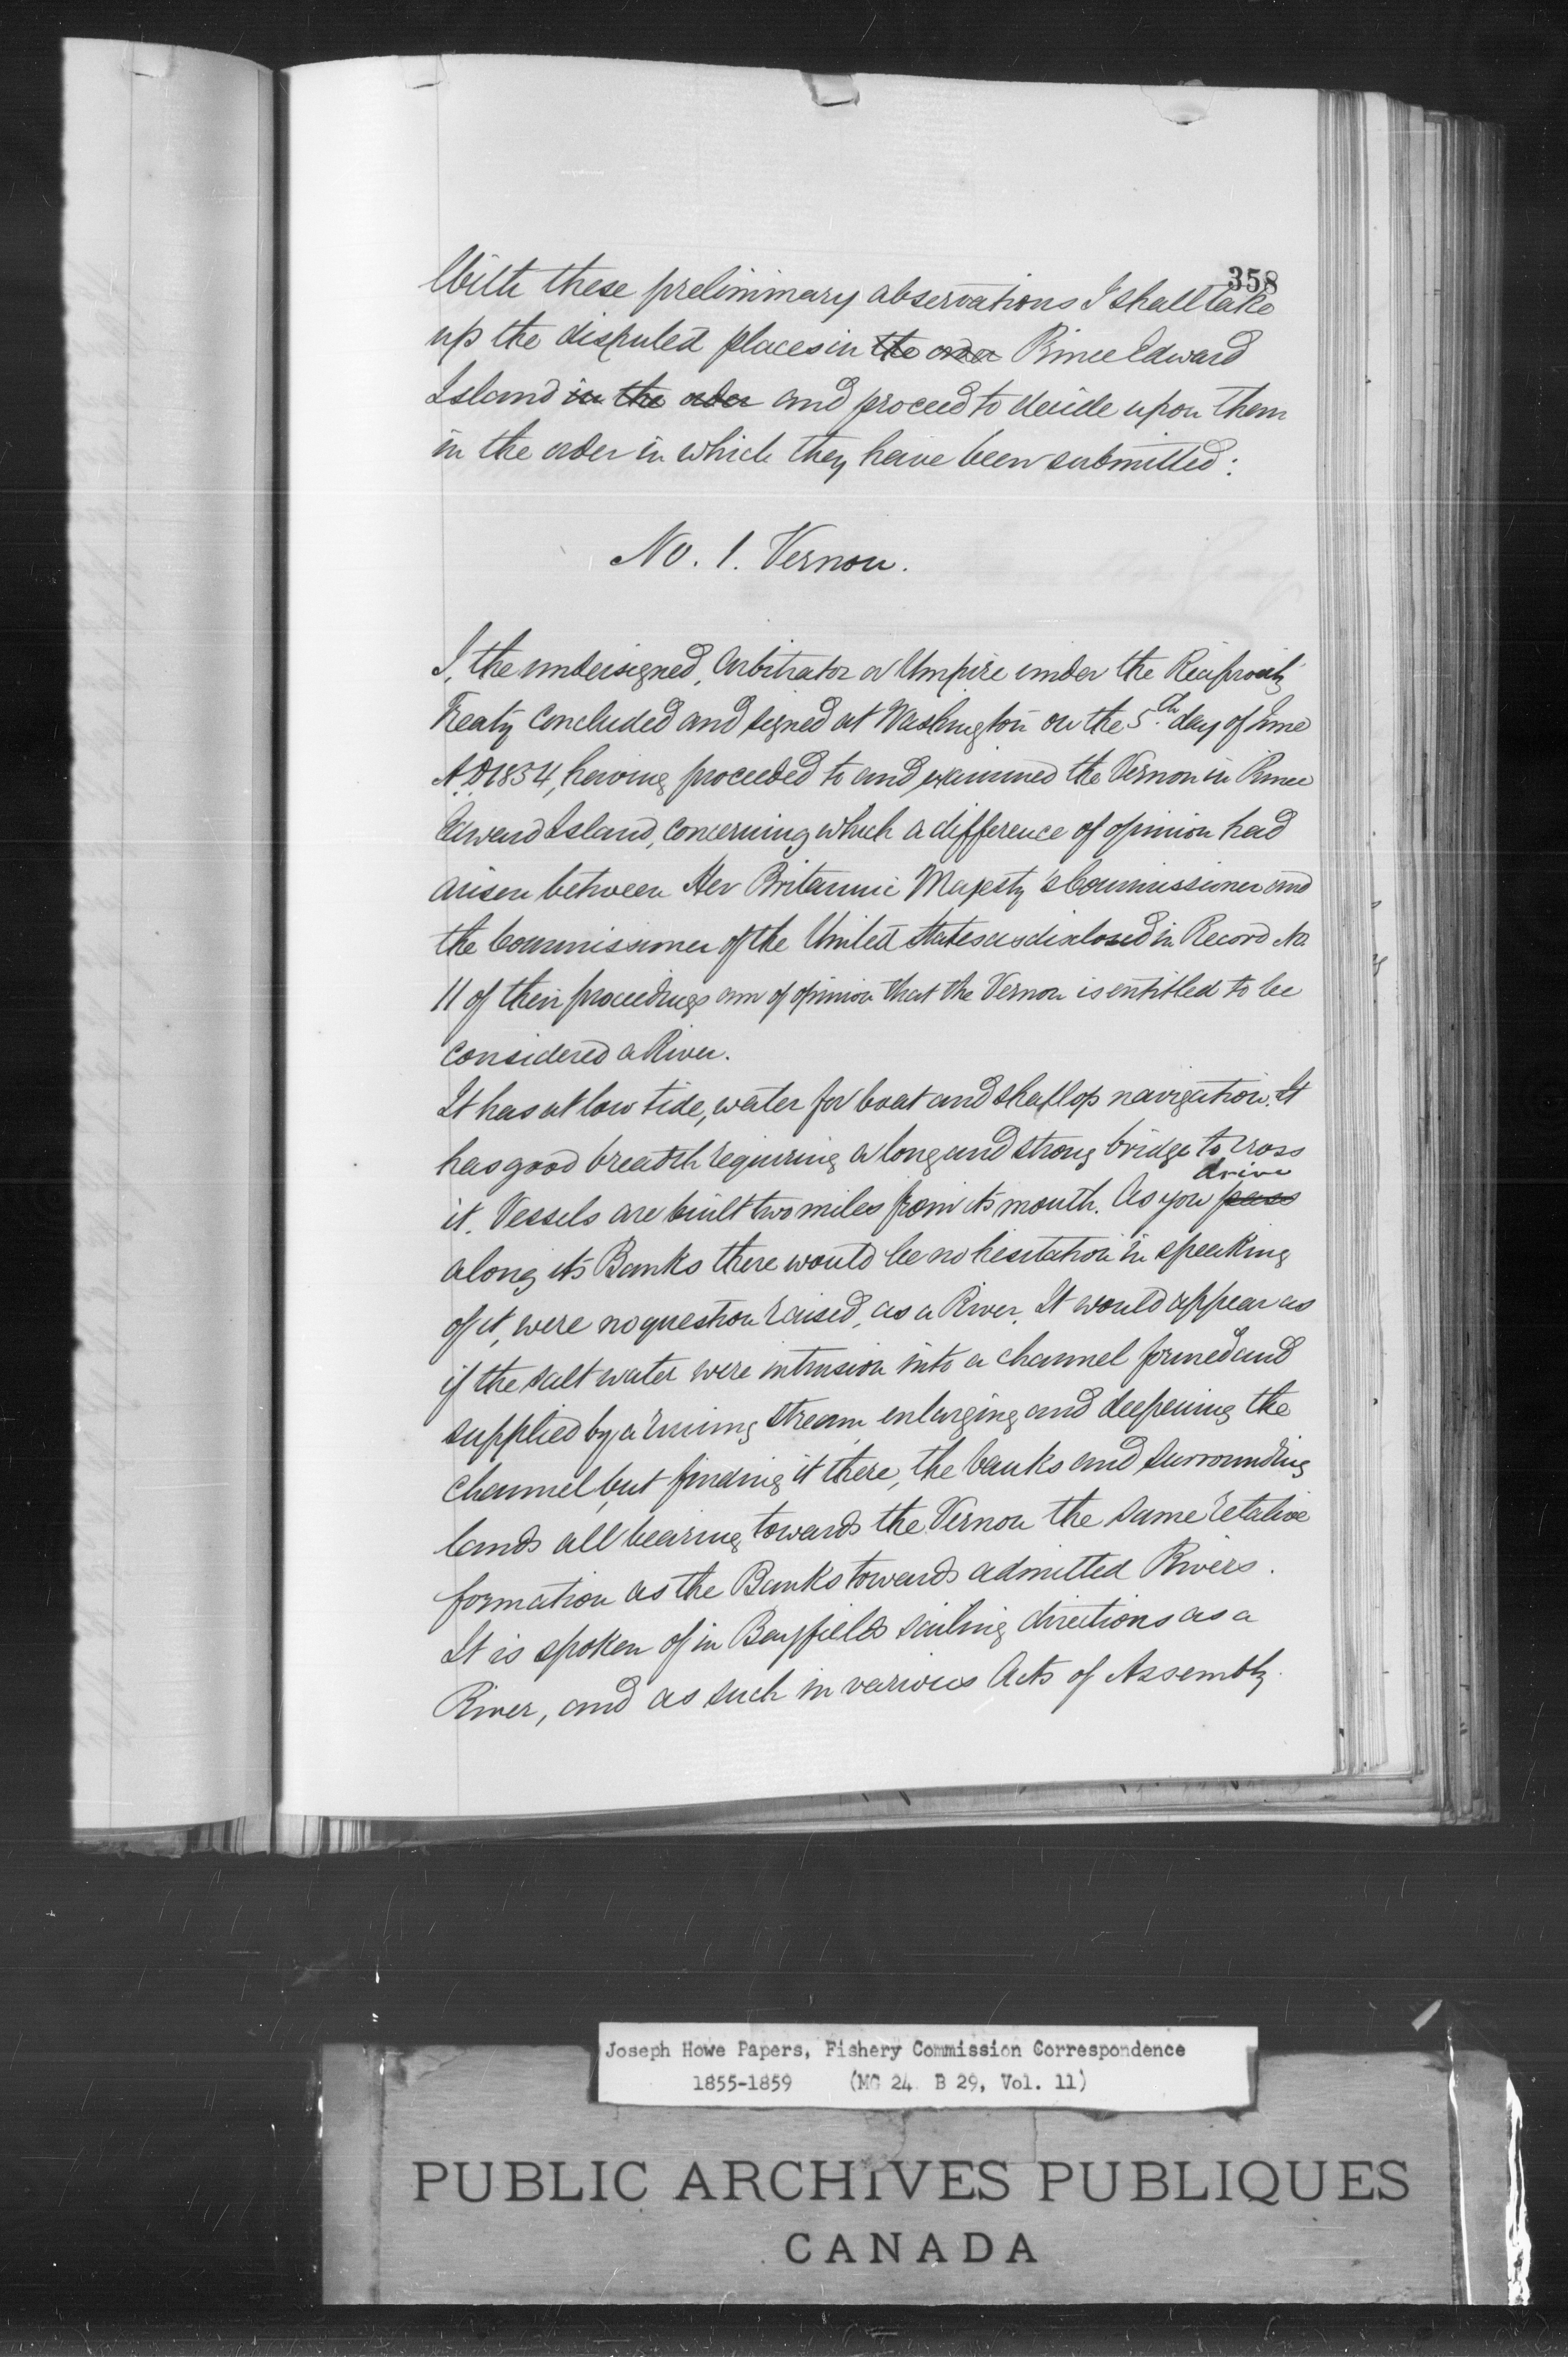 358
With these preliminary observations I shall take
up the disputed places in the order Prince Edward
Island in the order and proceed to decide upon them
in the order in which they have been submitted:
No. 1. Vernon.
I, the undersigned, Arbitrator or Umpire under the Reciprocity
Treaty concluded and signed at Washington on the 5th day of June
A.D. 1854, having proceeded to and examined the Vernon in Prince
Edward Island, concerning which a difference of opinion had
arisen between Her Britannic Majesty's Commissioner and
the Commissioner of the United States as disclosed in Record No
11 of their proceedings am of opinion that the Vernon is entitled to be
considered a River.
It has at low tide, water for boat and shallop navigation. It
has good breadth requiring a long and strong bridge to cross
drive
it. Vessels are built two miles from its mouth. As you pass
along its Banks there would be no hesitation in speaking
of it, were no question raised, as a River. It would appear as
if the salt water were intrusion into a channel formed and
supplied by a runing stream enlarging and deepening the
channel, but finding it there, the banks and surrounding
lands all bearing towards the Vernon the same relative
formation as the Banks towards admitted Rivers.
It is spoken of in Bayfields sailing directions as a
River, and as such in various Acts of Assembly.
Joseph Howe Papers, Fishery Commission Correspondence
1855-1859 (MG 24 B 29, Vol. 11)
PUBLIC ARCHIVES PUBLIQUES
CANADA